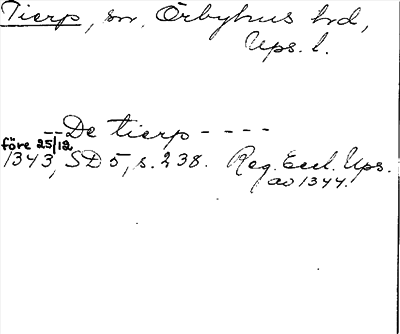 Tierp, sn, Örbyhus hd,
Ups. l.
-- De tierp ----
före 25/12
1343, SD 5, s. 238. Reg. Eccl. Ups.
av 1344.